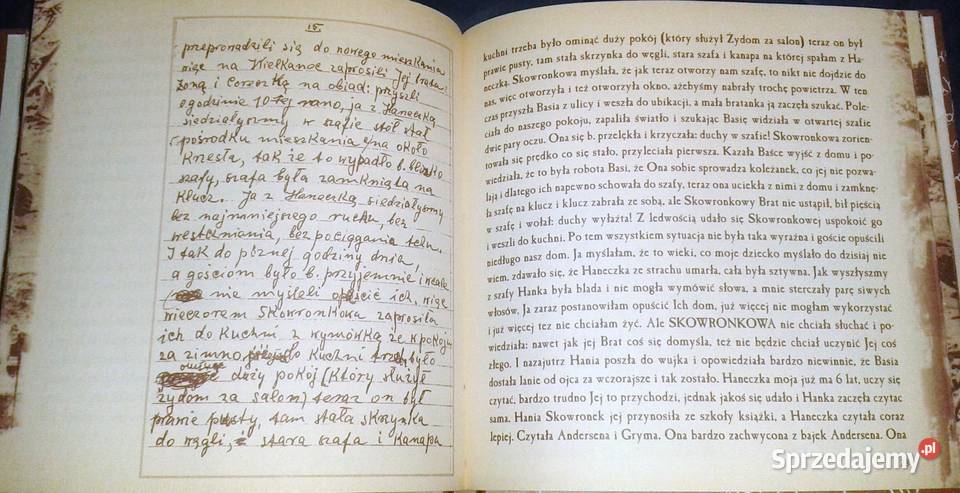 15.
przeprowadzili się do nowego mieszkania
więc na Wielkanoc zaprosili Jej brata z
żoną i Córeczką na obiad: przyszli
o godzinie 10-tej rano, ja z Haneczką
siedziałyśmy w szafie stół stał
pośrodku mieszkania a na około
krzesła, tak że to wypadło b. blisko
szafy, szafa była zamknięta na
klucz. Ja z Haneczką siedziałyśmy
bez najmniejszego ruchu, bez
westchniania, bez pociągania tchu.
I tak do późnej godziny dnia,
a gościom było b. przyjemnie i wcale
nie myśleli opuścić ich, więc
wieczorem Skowronkowa zaprosiła
ich do Kuchni z wymówką że w pokoju
za zimno, do Kuchni trzeba było
duży pokój (który służył
żydom za salon) teraz on był
prawie pusty, tam stała skrzynka
do węgli, stara szafa i Kanapa
kuchni trzeba było ominąć duży pokój (który służył Żydom za salon) teraz on był
prawie pusty, tam stała skrzynka do węgli, stara szafa i kanapa na której spałam z Ha-
neczką. Skowronkowa myślała, że jak teraz otworzy nam szafę, to nikt nie dojdzie do
nas, więc otworzyła i też otworzyła okno, ażebyśmy nabrały trochę powietrza. W ten
czas przyszła Basia z ulicy i weszła do ubikacji, a mała bratanka ją zaczęła szukać. Pole-
ciała do naszego pokoju, zapaliła światło i szukając Basię widziała w otwartej szafie
dwie pary oczu. Ona się b. przelękła i krzyczała: duchy w szafie! Skowronkowa zorien-
towała się prędko co się stało, przyleciała pierwsza. Kazała Baśce wyjść z domu i po-
wiedziała, że to była robota Basi, że Ona sobie sprowadza koleżanek, co jej nie pozwa-
lają i dlatego ich napewno schowała do szafy, teraz ona uciekła z nimi z domu i zamknę-
ła szafę na klucz i klucz zabrała ze sobą, ale Skowronkowy Brat nie ustąpił, bił pięścią
w szafę i wołał: duchy wyłaźta! Z ledwością udało się Skowronkowej uspokoić go
i weszli do kuchni. Po tem wszystkiem sytuacja nie była taka wyraźna i goście opuścili
niedługo nasz dom. Ja myślałam, że to wieki, co moje dziecko myślało do dzisiaj nie
wiem, zdawało się, że Haneczka ze strachu umarła, cała była sztywna. Jak wyszłyszmy
z szafy Hanka była blada i nie mogła wymówić słowa, a mnie sterczały parę siwych
włosów. Ja zaraz postanowiłam opuścić Ich dom, już więcej nie mogłam wykorzystać
i już więcej tez nie chciałam żyć. Ale SKOWRONKOWA nie chciała słuchać i po-
wiedziała: nawet jak jej Brat coś się domyśla, też nie będzie chciał uczynić Jej coś
złego. I nazajutrz Hania poszła do wujka i opowiedziała bardzo niewinnie, że Basia
dostała lanie od ojca za wczorajsze i tak zostało. Haneczka moja już ma 6 lat, uczy się
czytać, bardzo trudno Jej to przychodzi, jednak jakoś się udało i Hanka zaczęła czytać
sama. Hania Skowronek jej przynosiła ze szkoły książki, a Haneczka czytała coraz
lepiej. Czytała Andersena i Gryma. Ona bardzo zachwycona z bajek Andersena. Ona
Sprzedajemy.pl